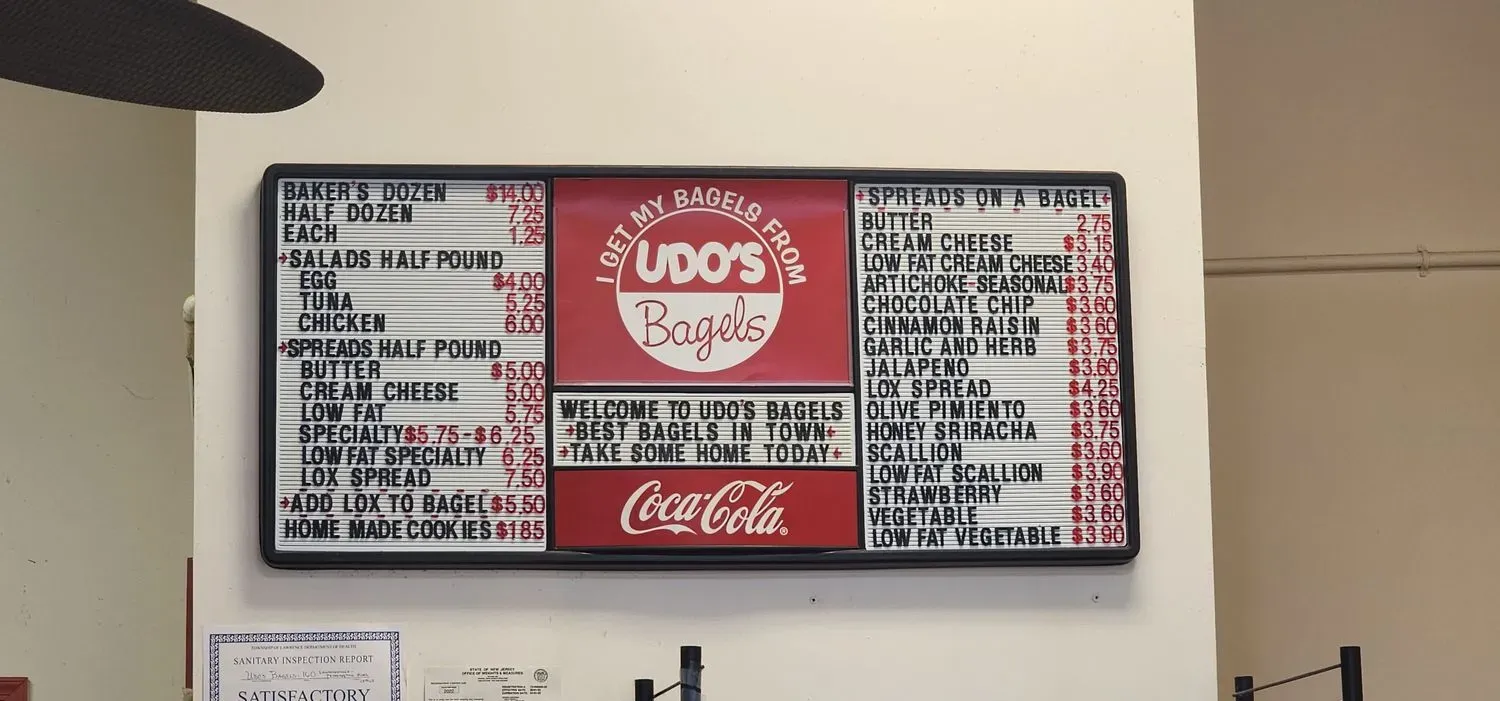 BAKER'S DOZEN $14.00
HALF DOZEN 7.25
EACH 1.25
SALADS HALF POUND
EGG $4.00
TUNA 5.25
CHICKEN 6.00
SPREADS HALF POUND
BUTTER $5.00
CREAM CHEESE 5.00
LOW FAT 5.75
SPECIALTY $5.75-$6.25
LOW FAT SPECIALTY 6.25
LOX SPREAD 7.50
ADD LOX TO BAGEL $5.50
HOME MADE COOKIES $1.85
I GET MY BAGELS FROM
UDO'S
Bagels
WELCOME TO UDO'S BAGELS
BEST BAGELS IN TOWN
TAKE SOME HOME TODAY
Coca-Cola®
SPREADS ON A BAGEL
BUTTER 2.75
CREAM CHEESE $3.15
LOW FAT CREAM CHEESE 3.40
ARTICHOKE-SEASONAL $3.75
CHOCOLATE CHIP $3.60
CINNAMON RAISIN $3.60
GARLIC AND HERB $3.75
JALAPENO $3.60
LOX SPREAD $4.25
OLIVE PIMIENTO $3.60
HONEY SRIRACHA $3.75
SCALLION $3.60
LOW FAT SCALLION $3.90
STRAWBERRY $3.60
VEGETABLE $3.60
LOW FAT VEGETABLE $3.90
TOWNSHIP OF LAWRENCE DEPARTMENT OF HEALTH
SANITARY INSPECTION REPORT
Udo's Bagels
SATISFACTORY
STATE OF NEW JERSEY
OFFICE OF WEIGHTS & MEASURES